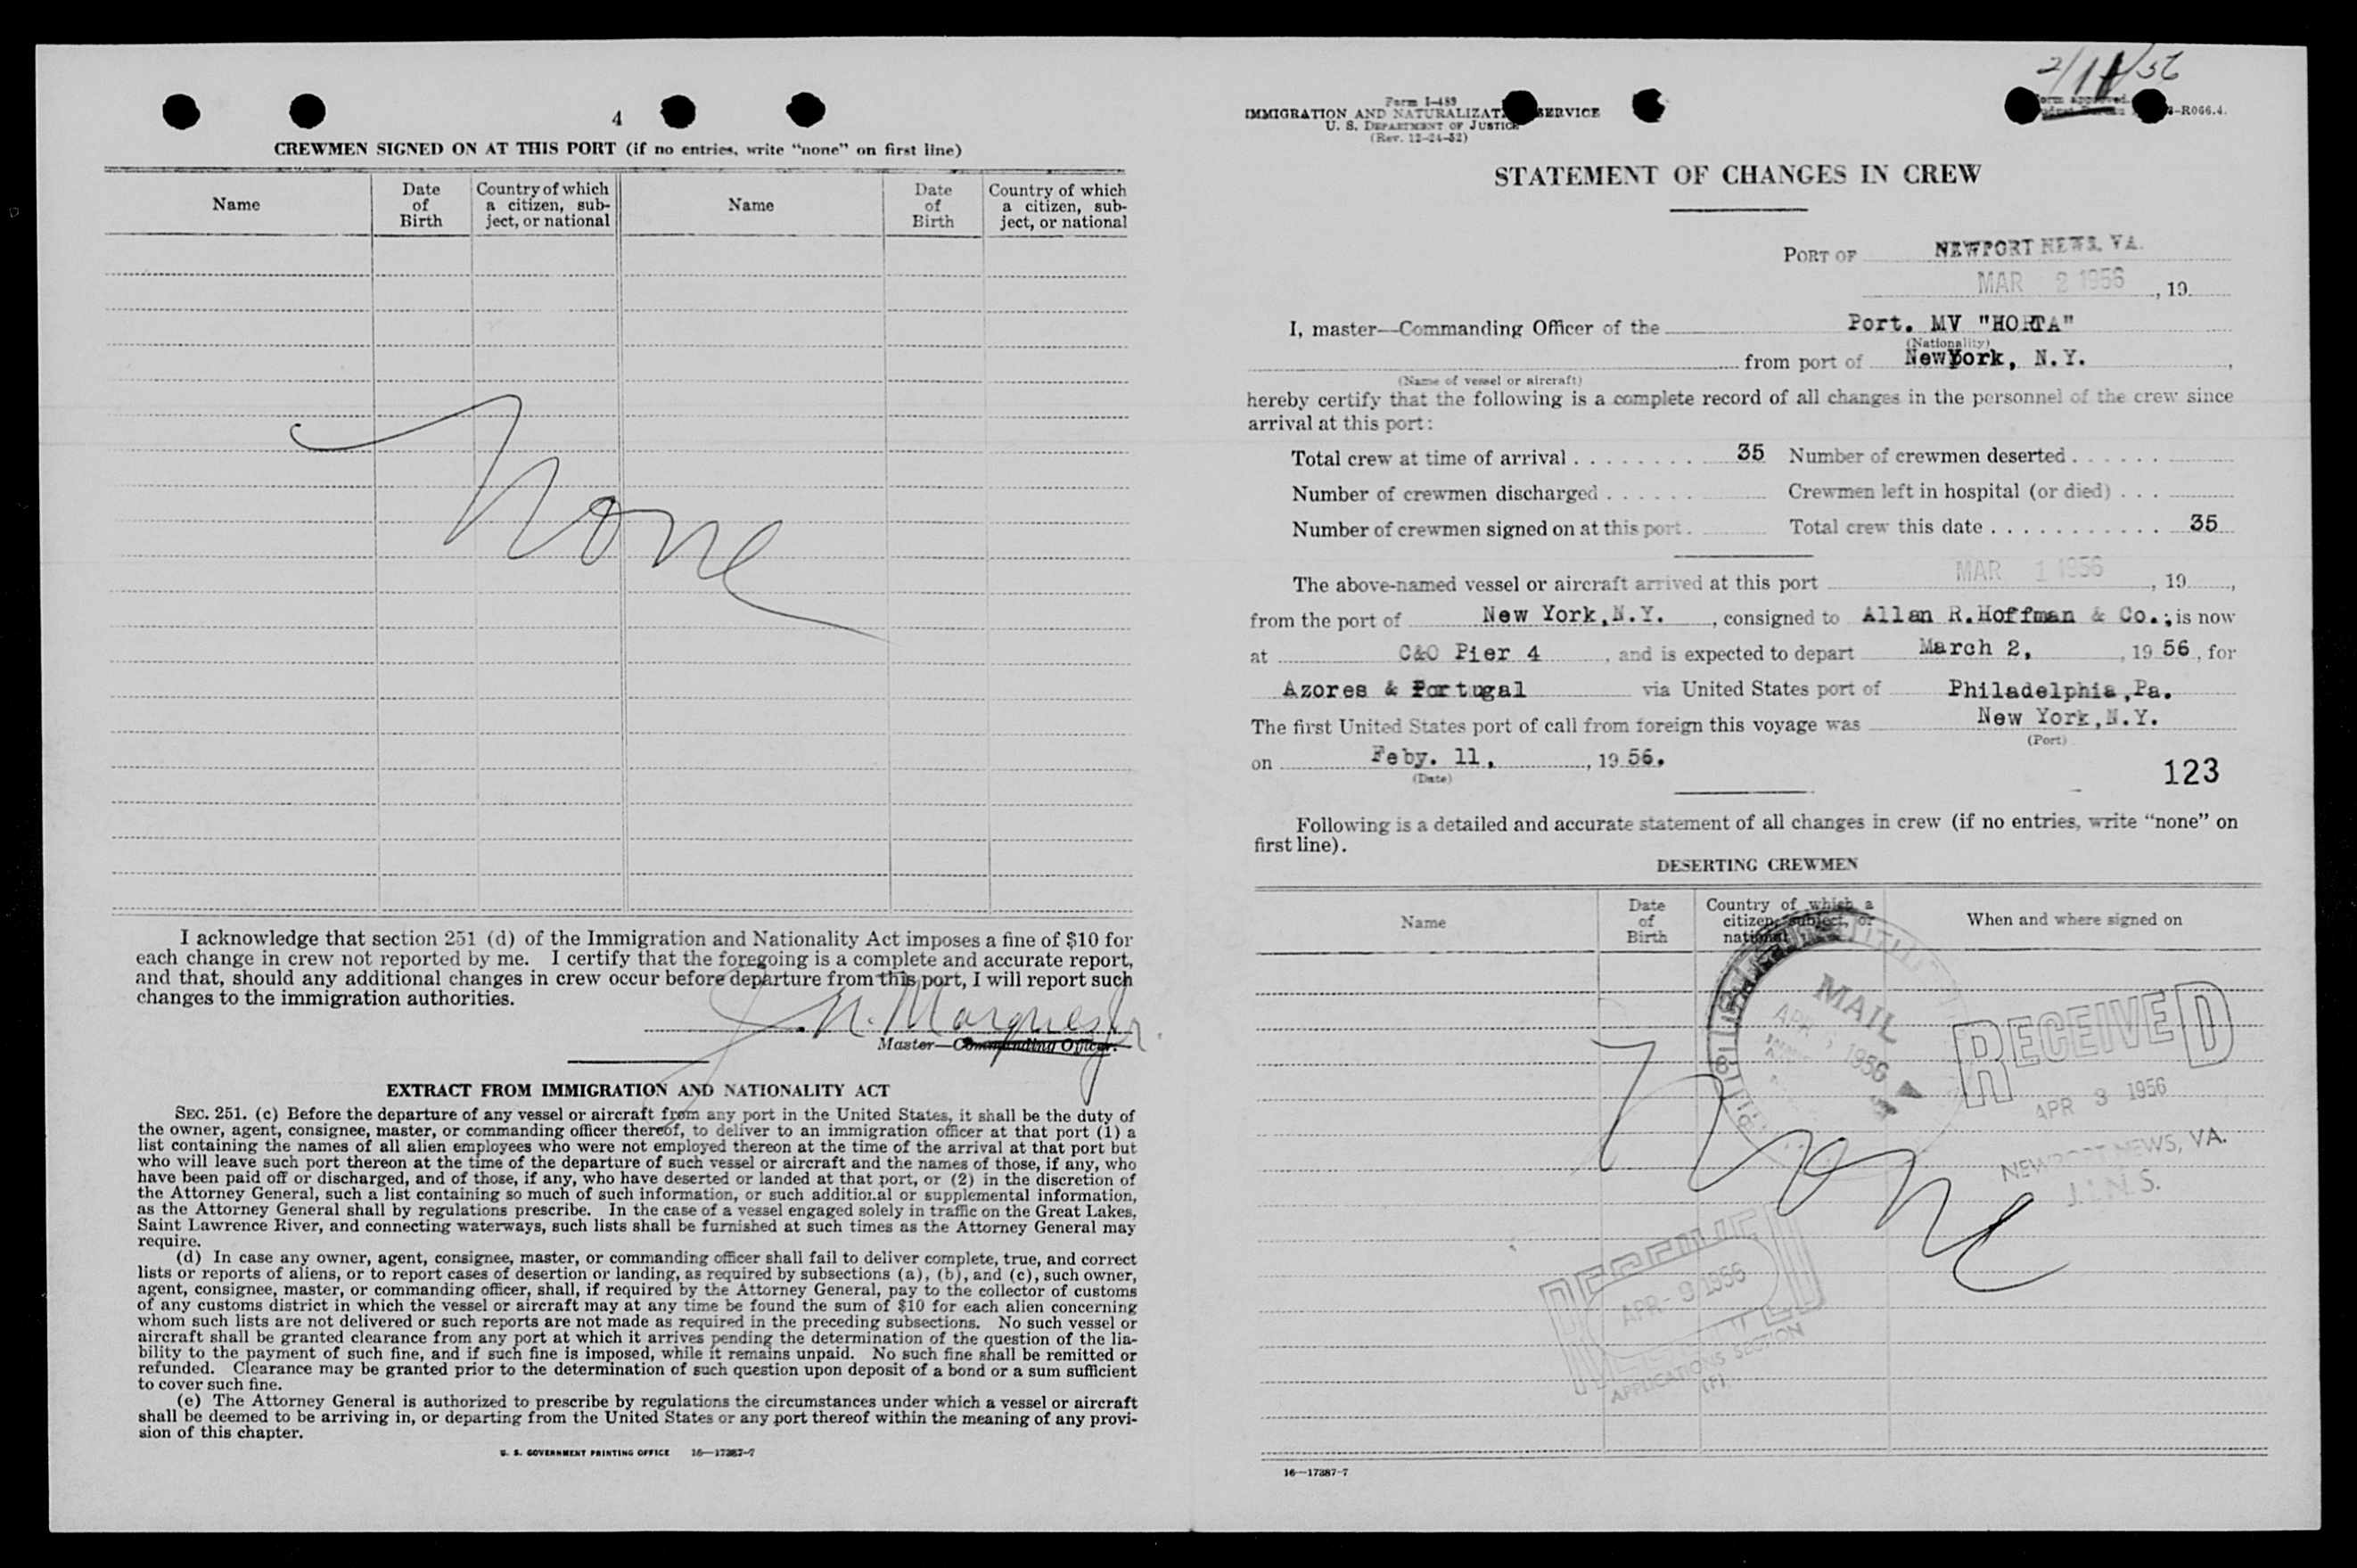 4
CREWMEN SIGNED ON AT THIS PORT (if no entries, write "none" on first line)
Name
Date of Birth
Country of which a citizen, subject, or national
Name
Date of Birth
Country of which a citizen, subject, or national
None
I acknowledge that section 251 (d) of the Immigration and Nationality Act imposes a fine of $10 for
each change in crew not reported by me. I certify that the foregoing is a complete and accurate report,
and that, should any additional changes in crew occur before departure from this port, I will report such
changes to the immigration authorities.
Marques
Master—Commanding Officer.
EXTRACT FROM IMMIGRATION AND NATIONALITY ACT
SEC. 251. (c) Before the departure of any vessel or aircraft from any port in the United States, it shall be the duty of
the owner, agent, consignee, master, or commanding officer thereof, to deliver to an immigration officer at that port (1) a
list containing the names of all alien employees who were not employed thereon at the time of the arrival at that port but
who will leave such port thereon at the time of the departure of such vessel or aircraft and the names of those, if any, who
have been paid off or discharged, and of those, if any, who have deserted or landed at that port, or (2) in the discretion of
the Attorney General, such a list containing so much of such information, or such additional or supplemental information,
as the Attorney General shall by regulations prescribe. In the case of a vessel engaged solely in traffic on the Great Lakes,
Saint Lawrence River, and connecting waterways, such lists shall be furnished at such times as the Attorney General may
require.
(d) In case any owner, agent, consignee, master, or commanding officer shall fail to deliver complete, true, and correct
lists or reports of aliens, or to report cases of desertion or landing, as required by subsections (a), (b), and (c), such owner,
agent, consignee, master, or commanding officer, shall, if required by the Attorney General, pay to the collector of customs
of any customs district in which the vessel or aircraft may at any time be found the sum of $10 for each alien concerning
whom such lists are not delivered or such reports are not made as required in the preceding subsections. No such vessel or
aircraft shall be granted clearance from any port at which it arrives pending the determination of the question of the lia-
bility to the payment of such fine, and if such fine is imposed, while it remains unpaid. No such fine shall be remitted or
refunded. Clearance may be granted prior to the determination of such question upon deposit of a bond or a sum sufficient
to cover such fine.
(e) The Attorney General is authorized to prescribe by regulations the circumstances under which a vessel or aircraft
shall be deemed to be arriving in, or departing from the United States or any port thereof within the meaning of any provi-
sion of this chapter.
U. S. GOVERNMENT PRINTING OFFICE 16—17387-7
2/11/56
Form I-489
IMMIGRATION AND NATURALIZAT SERVICE
U. S. DEPARTMENT OF JUSTICE
(Rev. 12-24-52)
Form approved.
-R066.4.
STATEMENT OF CHANGES IN CREW
PORT OF NEWPORT NEWS, VA.
MAR 2 1956, 19
I, master—Commanding Officer of the Port. MV "HORTA"
(Nationality)
from port of New York, N.Y.,
(Name of vessel or aircraft)
hereby certify that the following is a complete record of all changes in the personnel of the crew since
arrival at this port:
Total crew at time of arrival . . . . . . . . 35 Number of crewmen deserted . . . . . .
Number of crewmen discharged . . . . . . Crewmen left in hospital (or died) . . .
Number of crewmen signed on at this port . Total crew this date . . . . . . . . . . . 35
The above-named vessel or aircraft arrived at this port MAR 1 1956, 19,
from the port of New York, N.Y., consigned to Allan R. Hoffman & Co.; is now
at C&O Pier 4, and is expected to depart March 2, 1956, for
Azores & Portugal via United States port of Philadelphia, Pa.
The first United States port of call from foreign this voyage was New York, N.Y.
(Port)
on Feby. 11, 1956.
(Date)
123
Following is a detailed and accurate statement of all changes in crew (if no entries, write "none" on
first line).
DESERTING CREWMEN
Name
Date of Birth
Country of which a citizen, subject, or national
When and where signed on
MAIL
APR 1956
RECEIVED
APR 3 1956
NEWPORT NEWS, VA.
None
APR - 9 1956
APPLICATIONS SECTION
16—17387-7